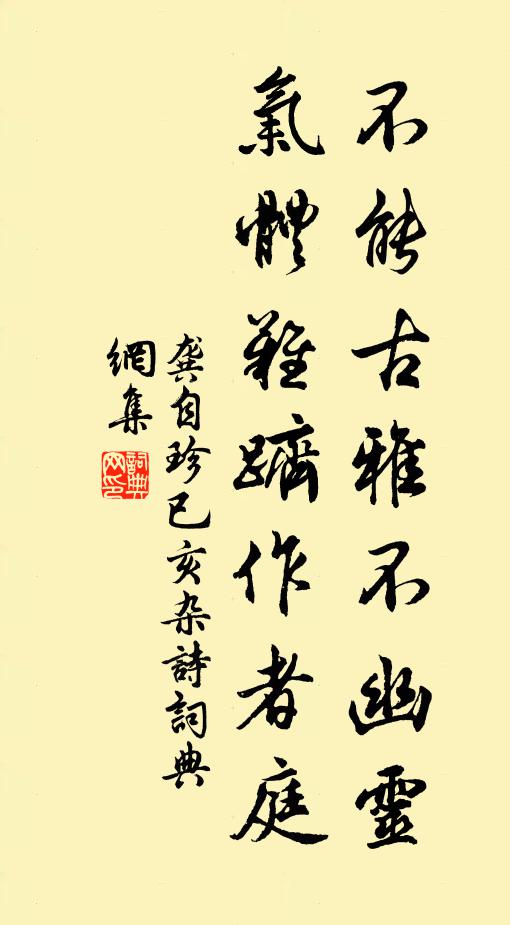 不能古雅不幽靈
氣體難躋作者庭
龔自珍己亥杂詩詞典
網集
詞典网印